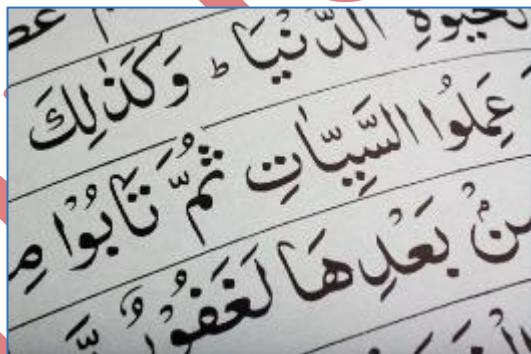 الْحَيٰوةِ الدُّنْيَا ؕ وَكَذٰلِكَ
عَمِلُوا السَّيِّاٰتِ ثُمَّ تَابُوْا مِ
مِنْۢ بَعْدِهَا لَغَفُوْرٌ